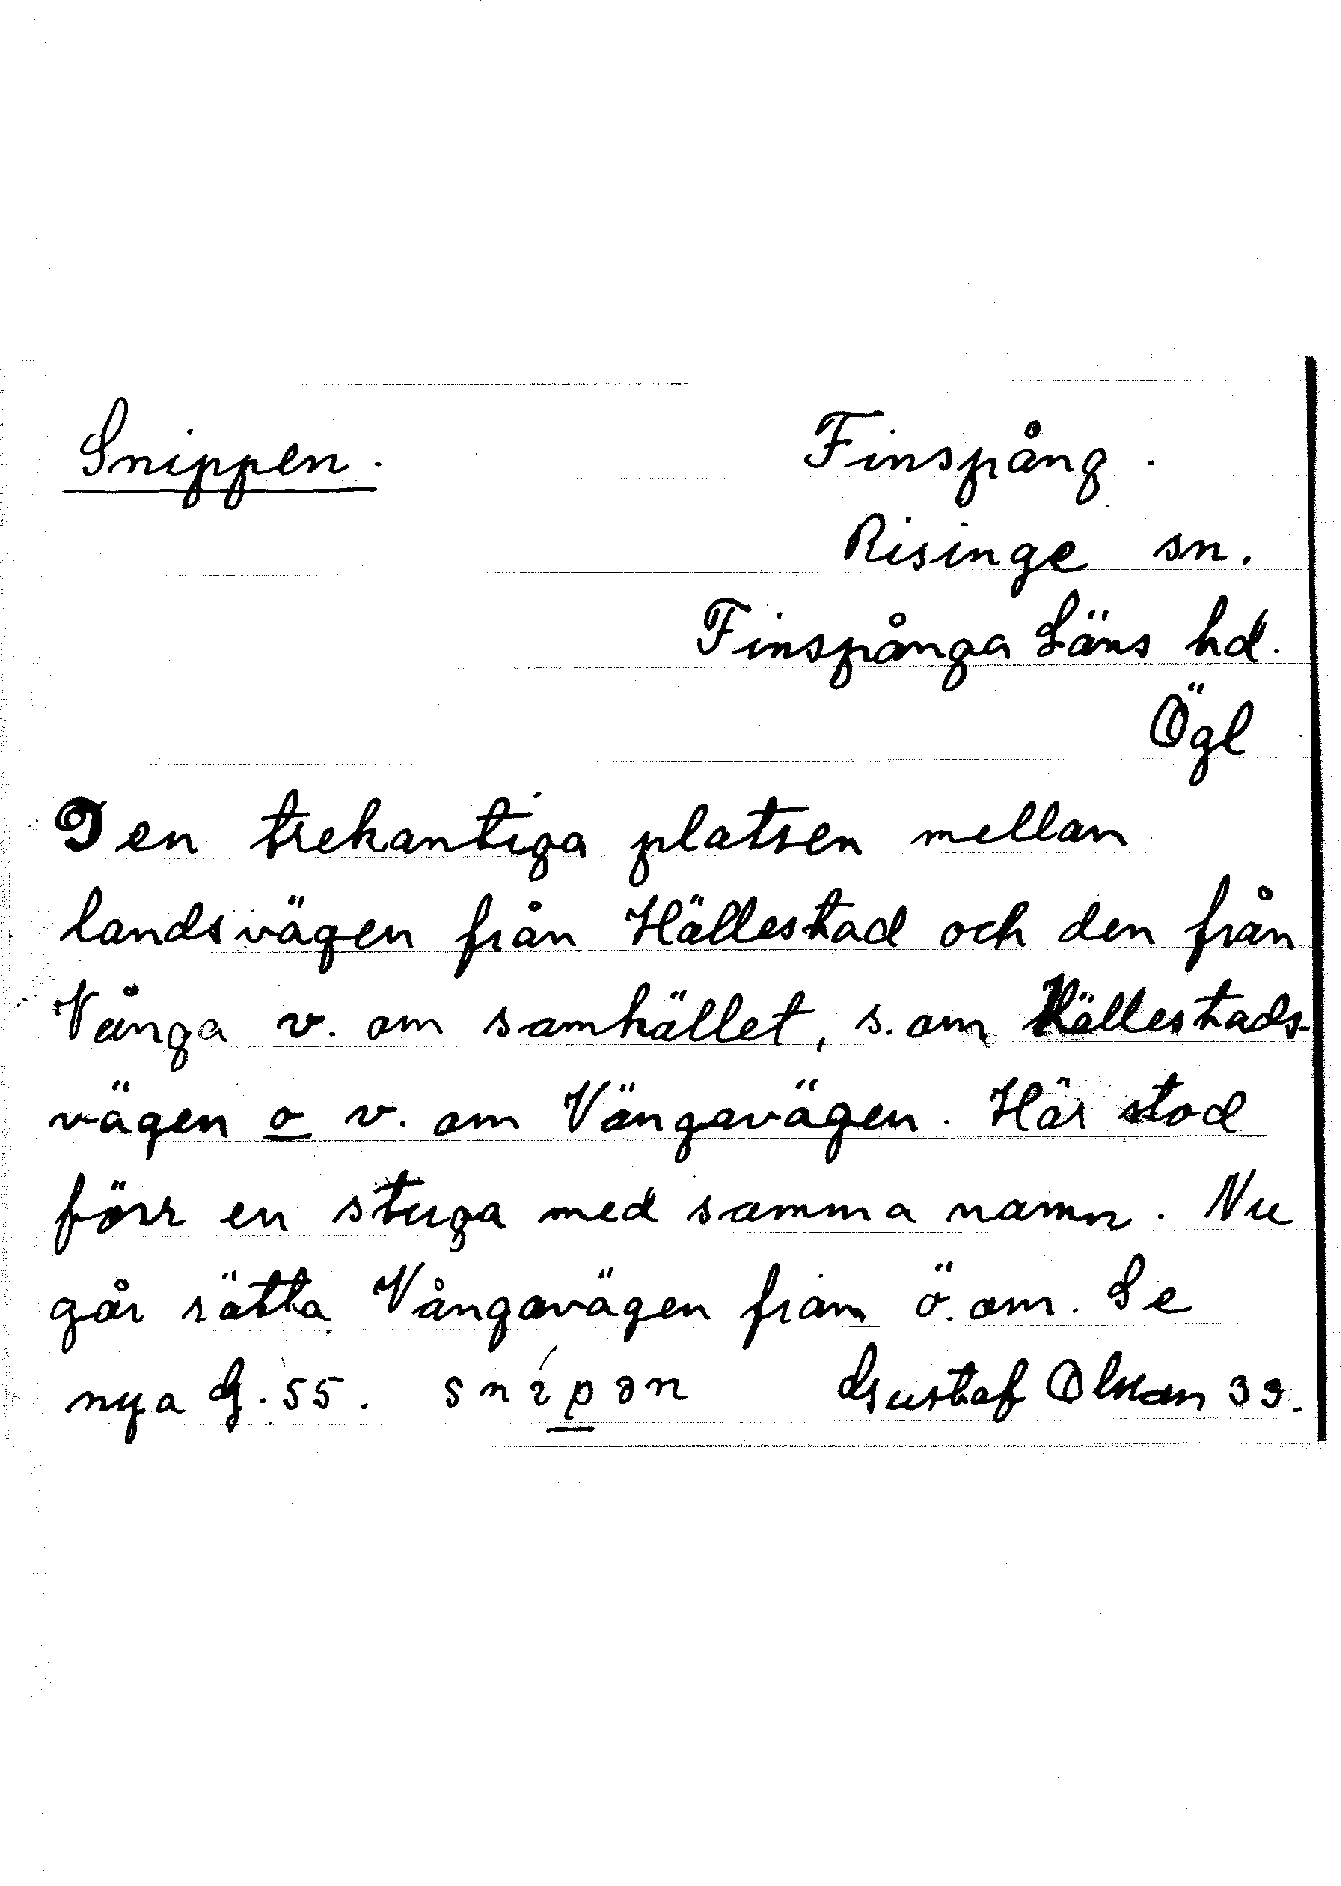 Snippen.
Finspång.
Risinge sn.
Finspånga Läns hd.
Ögl
Den trekantiga platsen mellan
landsvägen från Hällestad och den från
Vånga v. om samhället, s. om Hällestads-
vägen o v. om Vångavägen. Här stod
förr en stuga med samma namn. Nu
går rätta Vångavägen fram ö. om. Se
nya G. 55. snípən Gustaf Olsson 39.